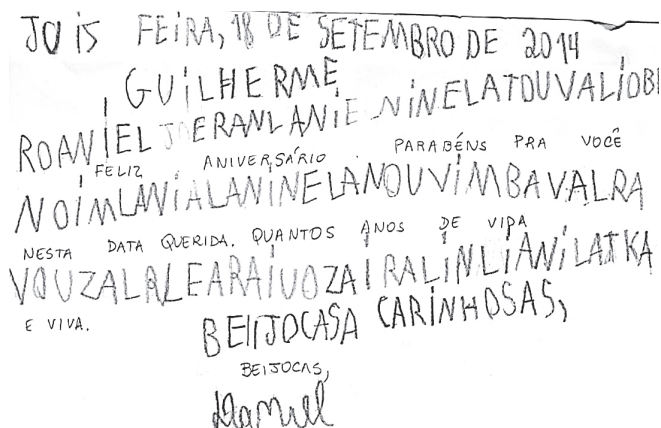 JUIS FEIRA, 18 DE SETEMBRO DE 2014
GUILHERME
ROANIEL ERANLANIE NINELATOUVALIOBI
FELIZ ANIVERSÁRIO PARABÉNS PRA VOCÊ
NOIMLANIALANINELANOUVIMBAVALRA
NESTA DATA QUERIDA. QUANTOS ANOS DE VIDA
VOUZALRLEARAIUOZAIRALINLIANILATKA
E VIVA.
BEIIJOCASA CARINHOSAS,
BEIJOCAS,
Daniel